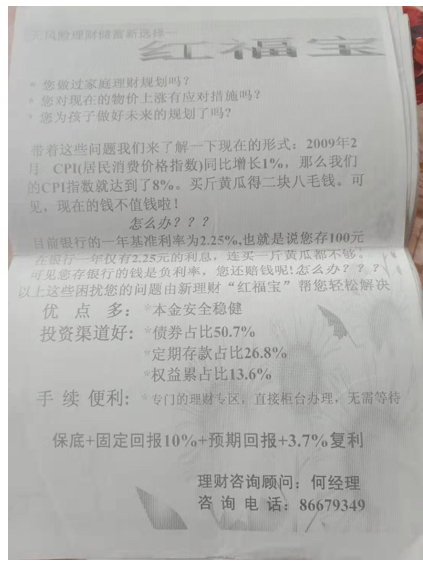 无风险理财储蓄新选择—
红福宝
* 您做过家庭理财规划吗？
* 您对现在的物价上涨有应对措施吗？
* 您为孩子做好未来的规划了吗？
带着这些问题我们来了解一下现在的形式：2009年2
月 CPI(居民消费价格指数)同比增长1%，那么我们
的CPI指数就达到了8%。买斤黄瓜得二块八毛钱。可
见，现在的钱不值钱啦！
怎么办？？？
目前银行的一年基准利率为2.25%,也就是说您存100元
在银行一年仅有2.25元的利息，连买一斤黄瓜都不够！
可见您存银行的钱是负利率，您还赔钱呢!怎么办？？？
以上这些困扰您的问题由新理财“红福宝”帮您轻松解决
优 点 多： *本金安全稳健
投资渠道好: *债券占比50.7%
*定期存款占比26.8%
*权益累占比13.6%
手 续 便利: *专门的理财专区，直接柜台办理，无需等待
保底+固定回报10%+预期回报+3.7%复利
理财咨询顾问：何经理
咨 询 电 话：86679349